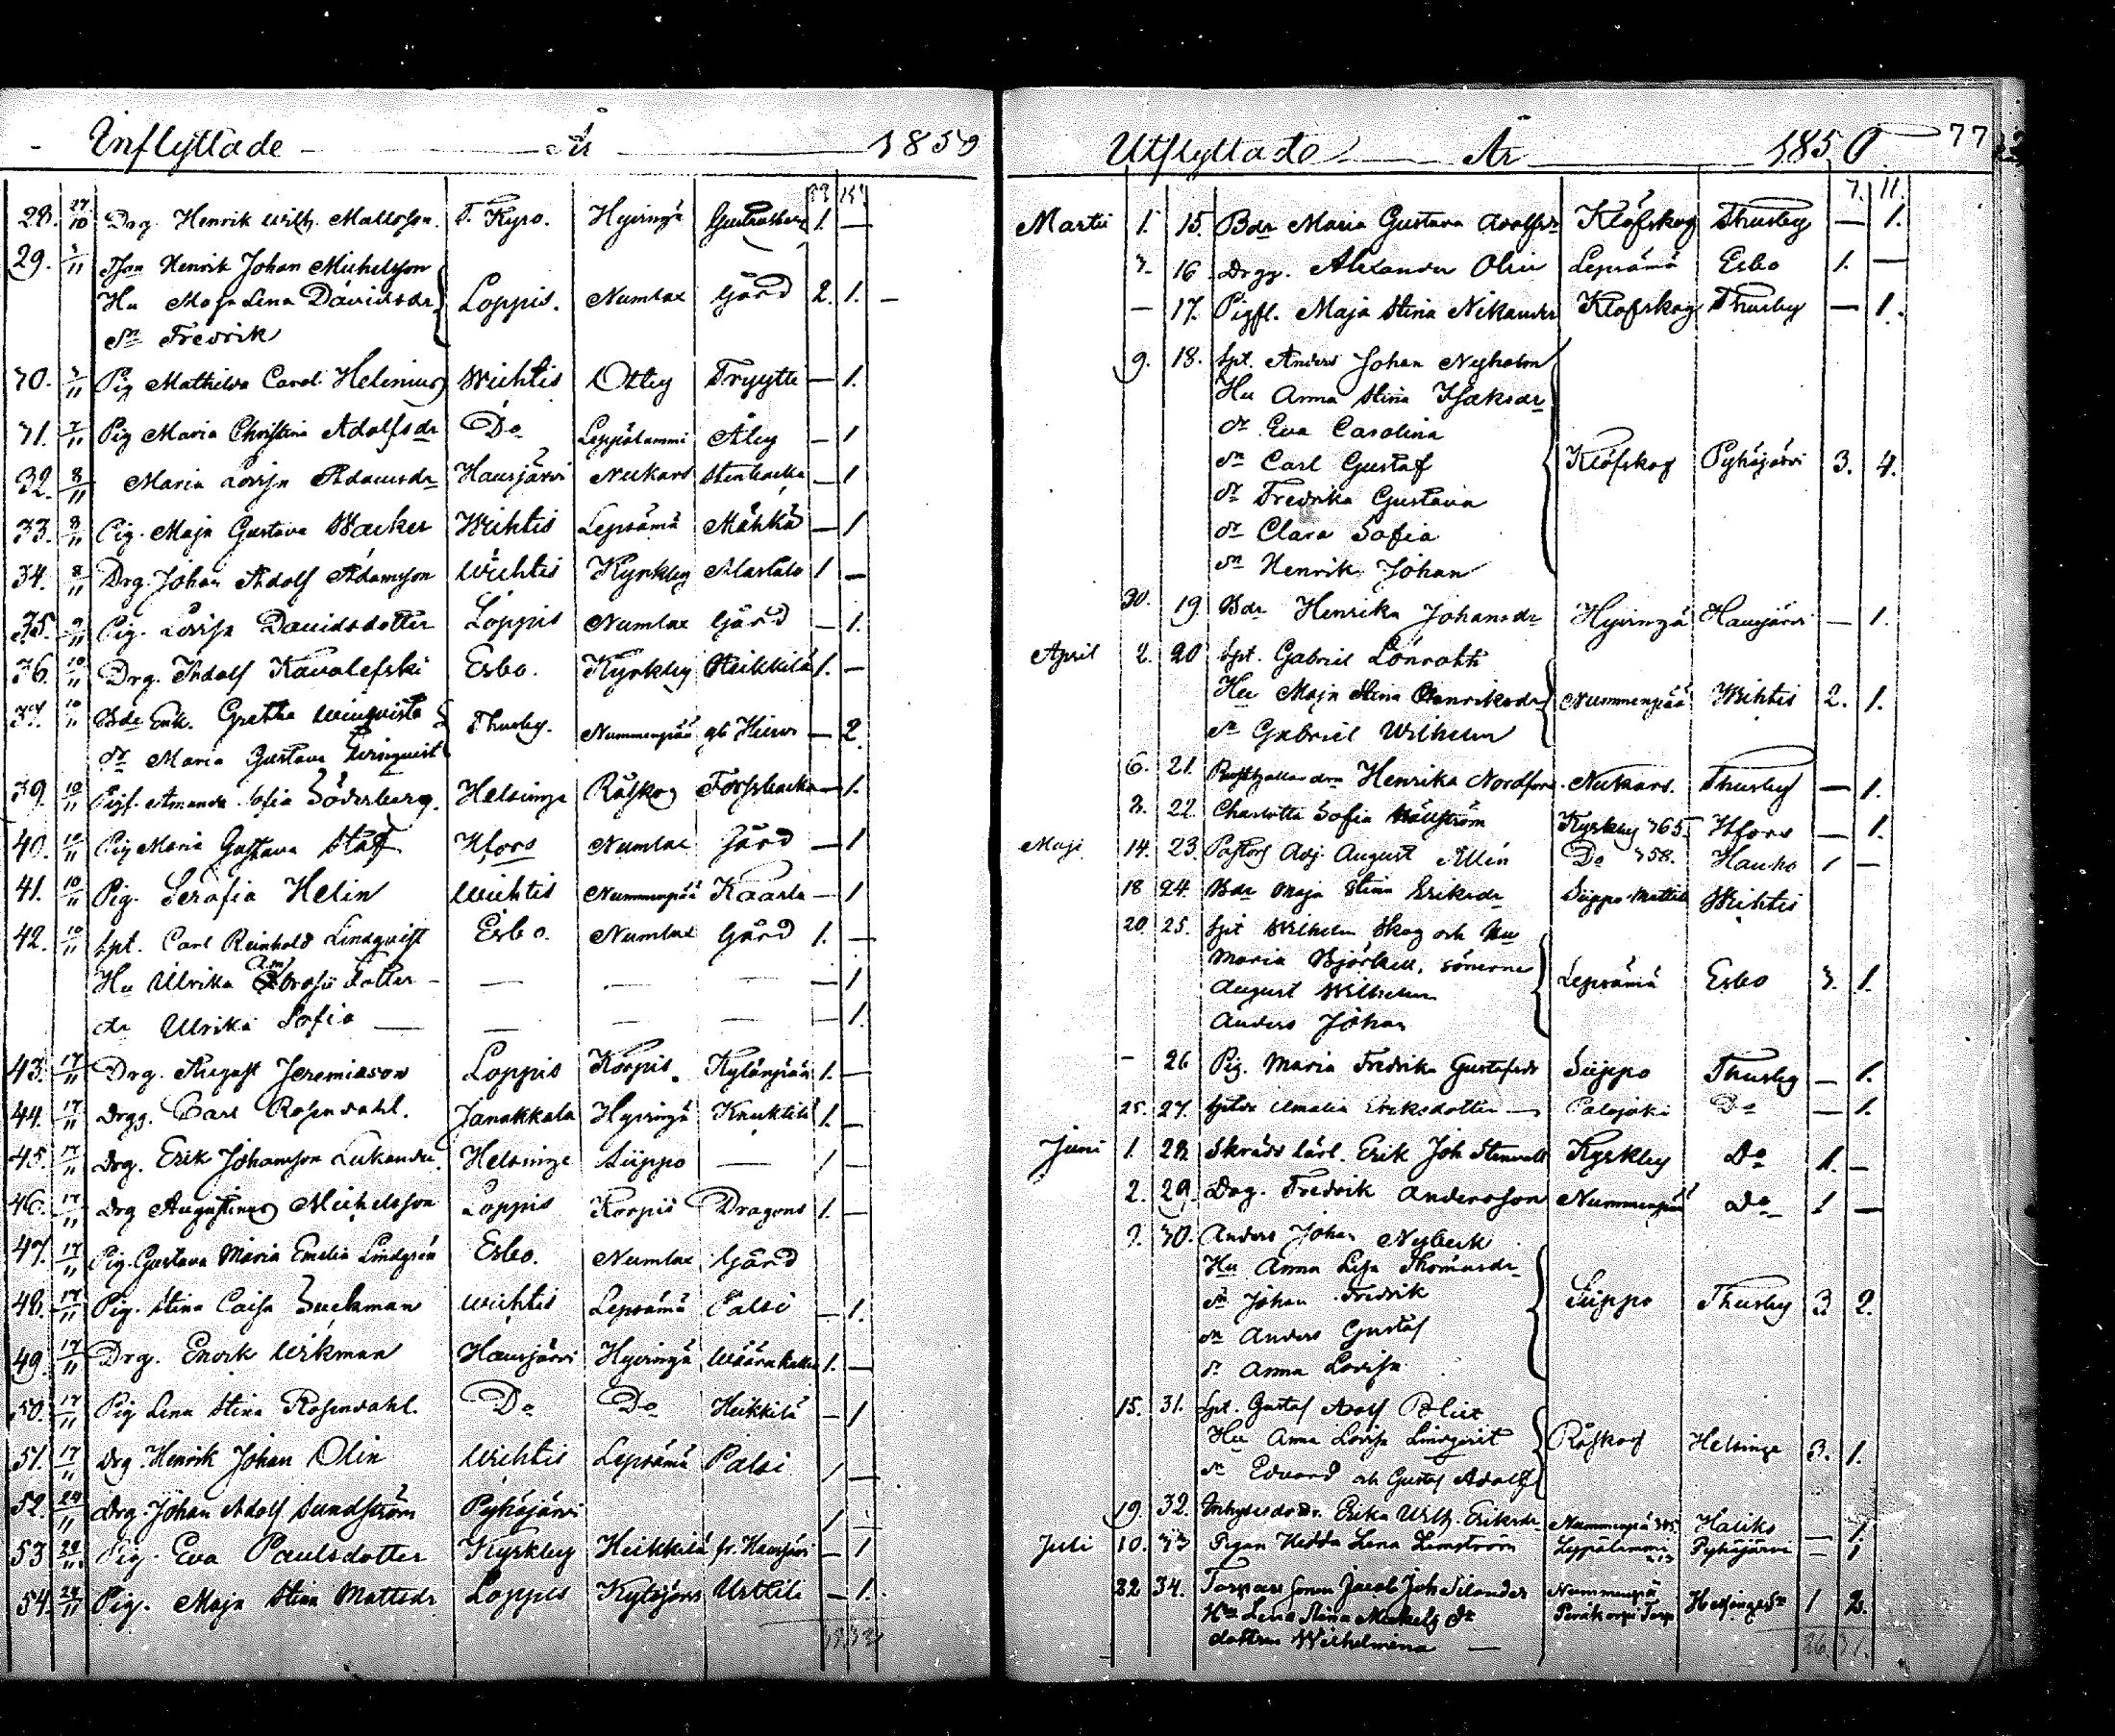 Inflyttade År 1859
28. 27/10 Drg. Henrik Wilh. Mattsson. T. Kyro. Hyvingä 1. —
29. /11 Henrik Johan Michelsson
Hu Maja Lena Davidsdr Loppis. Numlax Gård 2. 1. —
Sn Fredrik
30. /11 Pig Mathilda Carol. Helenius Wichtis Otby Fryytti — 1.
31. 7/11 Pig Maria Christina Adolfsdr Do Leppälammi Åby — 1
32. 8/11 Maria Lovisa Adamsdr Hausjärvi Nukars Stenbacka — 1
33. 8/11 Pig. Maja Gustava Wacker Wichtis Lepsämä Mähkä — 1
34. 8/11 Drg. Johan Adolf Adamsson Wichtis Kyrkby Alastalo 1 —
35. 9/11 Pig. Lovisa Davidsdotter Loppis Numlax Gård — 1.
36. 10/11 Drg. Adolf Kavalefski Esbo. Kyrkby Heikkilä 1. —
37. 10/11 Bde Enk. Gretha Winqvist Thusby. Nummenpää — 2.
dr Maria Gustava Winqvist
39. 10/11 Pigf. Amanda Sofia Söderberg. Helsinge Råskog Forssbacka — 1.
40. 10/11 Pig Maria Gustava Staf Hfors Numlax Gård — 1
41. 10/11 Pig. Serafia Helin Wichtis Nummenpää Kaarla — 1
42. 10/11 Spt. Carl Reinhold Lindqvist Esbo. Numlax Gård 1. —
Hu Ulrika Ambrosii dotter — — — — — 1
dr Ulrika Sofia — — — — — 1.
43. 17/11 Drg. August Jeremiasson Loppis Korpis. Kylänpää 1. —
44. 17/11 Drgg. Carl Rosendahl. Janakkala Hyvingä Knuktila 1. —
45. 17/11 Drg. Erik Johansson Lukander. Helsinge Siippo — 1 —
46. 17/11 Drg Augustinus Michelsson Loppis Korpis Dragons 1. —
47. 17/11 Pig. Gustava Maria Emelia Lindgrén Esbo. Numlax Gård
48. 17/11 Pig. Stina Caisa Suckman Wichtis Lepsämä Palsi — 1.
49. 17/11 Drg. Enock Wikman Hausjärvi Hyvingä 1. —
50. 17/11 Pig Lena Stina Rosendahl. Do Do Heikkilä — 1
51. 17/11 Drg. Henrik Johan Olin Wichtis Lepsämä Palsi 1 —
52. 24/11 Drg. Johan Adolf Sundström Pyhäjärvi 1 —
53 24/11 Pig. Eva Paulsdotter Kyrkby Heikkilä fr. Hausjärvi — 1
54. 24/11 Pig. Maja Stina Mattsdr Loppis Kytöjoki Uttila — 1.
Utflyttade År 1850 77
7. 11.
Martii 1. 15. Bdr Maria Gustava Adolfsdr Klöfskog Thusby — 1.
7. 16. Drgg. Alexander Olin Lepsämä Esbo 1. —
— 17. Pigfl. Maja Stina Nikander Klöfskog Thusby — 1.
9. 18. Spt. Anders Johan Nyholm
Hu Anna Stina Isaksdr
dr Eva Carolina
Sn Carl Gustaf Klöfskog Pyhäjärvi 3. 4.
dr Fredrika Gustava
dr Clara Sofia
Sn Henrik Johan
30. 19. Bdr Henrika Johansdr Hyvingä Hausjärvi — 1.
April 2. 20 Spt. Gabriel Lönroth
Hu Maja Stina Henriksdr Nummenpää Wichtis 2. 1.
Sn Gabriel Wilhelm
6. 21. Rusthållaredr. Henrika Nordfors Nukars. Thusby — 1.
8. 22. Charlotta Sofia Kyrkby 365. Hfors — 1.
Maji 14. 23. Pastors Adj. August Allén Do 358. Hauho 1 —
18 24. Bdr Maja Stina Eriksdr Siippo Mattila Wichtis
20. 25. Spt Wilhelm Skog och Hu
Maria Björkell, sönerne Lepsämä Esbo 3. 1.
August Wilhelm
Anders Johan
— 26 Pig. Maria Fredrika Gustafsdr Siippo Thusby — 1.
25. 27. Amalia Eriksdotter — Palojoki Do — 1.
Juni 1. 28. Skrädd lärl. Erik Joh Stenvall Kyrkby Do 1. —
2. 29. Drg. Fredrik Andersson Nummenpää Do 1 —
9. 30. Anders Johan Nybeck
Hu Anna Lisa Thomasdr
Sn Johan Fredrik Siippo Thusby 3 2.
Sn Anders Gustaf
dr Anna Lovisa
15. 31. Spt. Gustaf Adolf
Hu Anna Lovisa Lindqvist Råskog Helsinge 3. 1.
Sn Edvard och Gustaf Adolf
19. 32. Inhysesdr. Erika Wilh. Eriksdr Nummenpää Haliko — 1.
Juli 10. 33 Pigan Hedda Lena Lindström Leppälammi Pyhäjärvi — 1
22 34. Torpare sonen Jacob Joh Silander Nummenpää Helsinge Sn 1 2.
Hu Lena Stina Michelsdr Torp
dottren Wilhelmina —
26 31.